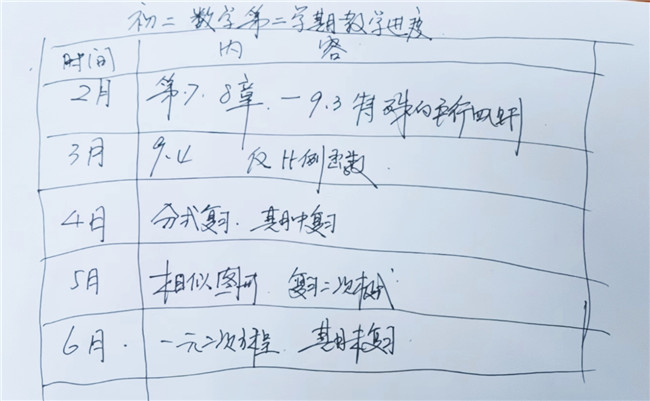 初二数学第二学期教学进度
时间 内容
2月 第7.8章.－9.3特殊的平行四边形
3月 9.4 反比例函数
4月 分式复习.期中复习
5月 相似图形 复习二次根式
6月. 一元二次方程 期末复习